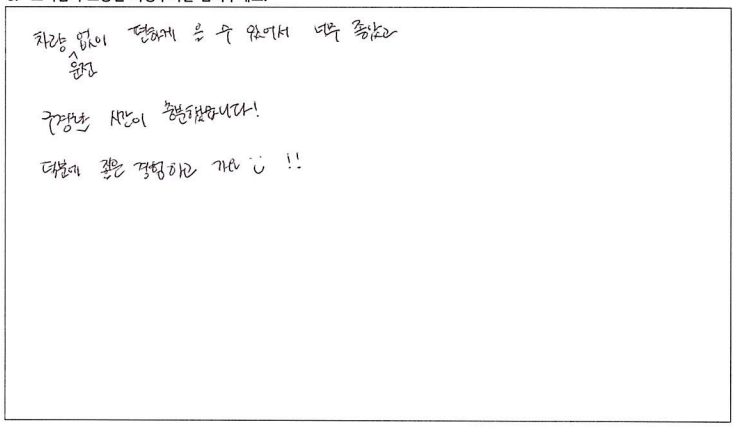 차량 운전 없이 편하게 올 수 있어서 너무 좋았고
구경할 시간이 충분했습니다!
덕분에 좋은 경험하고 가요 !!